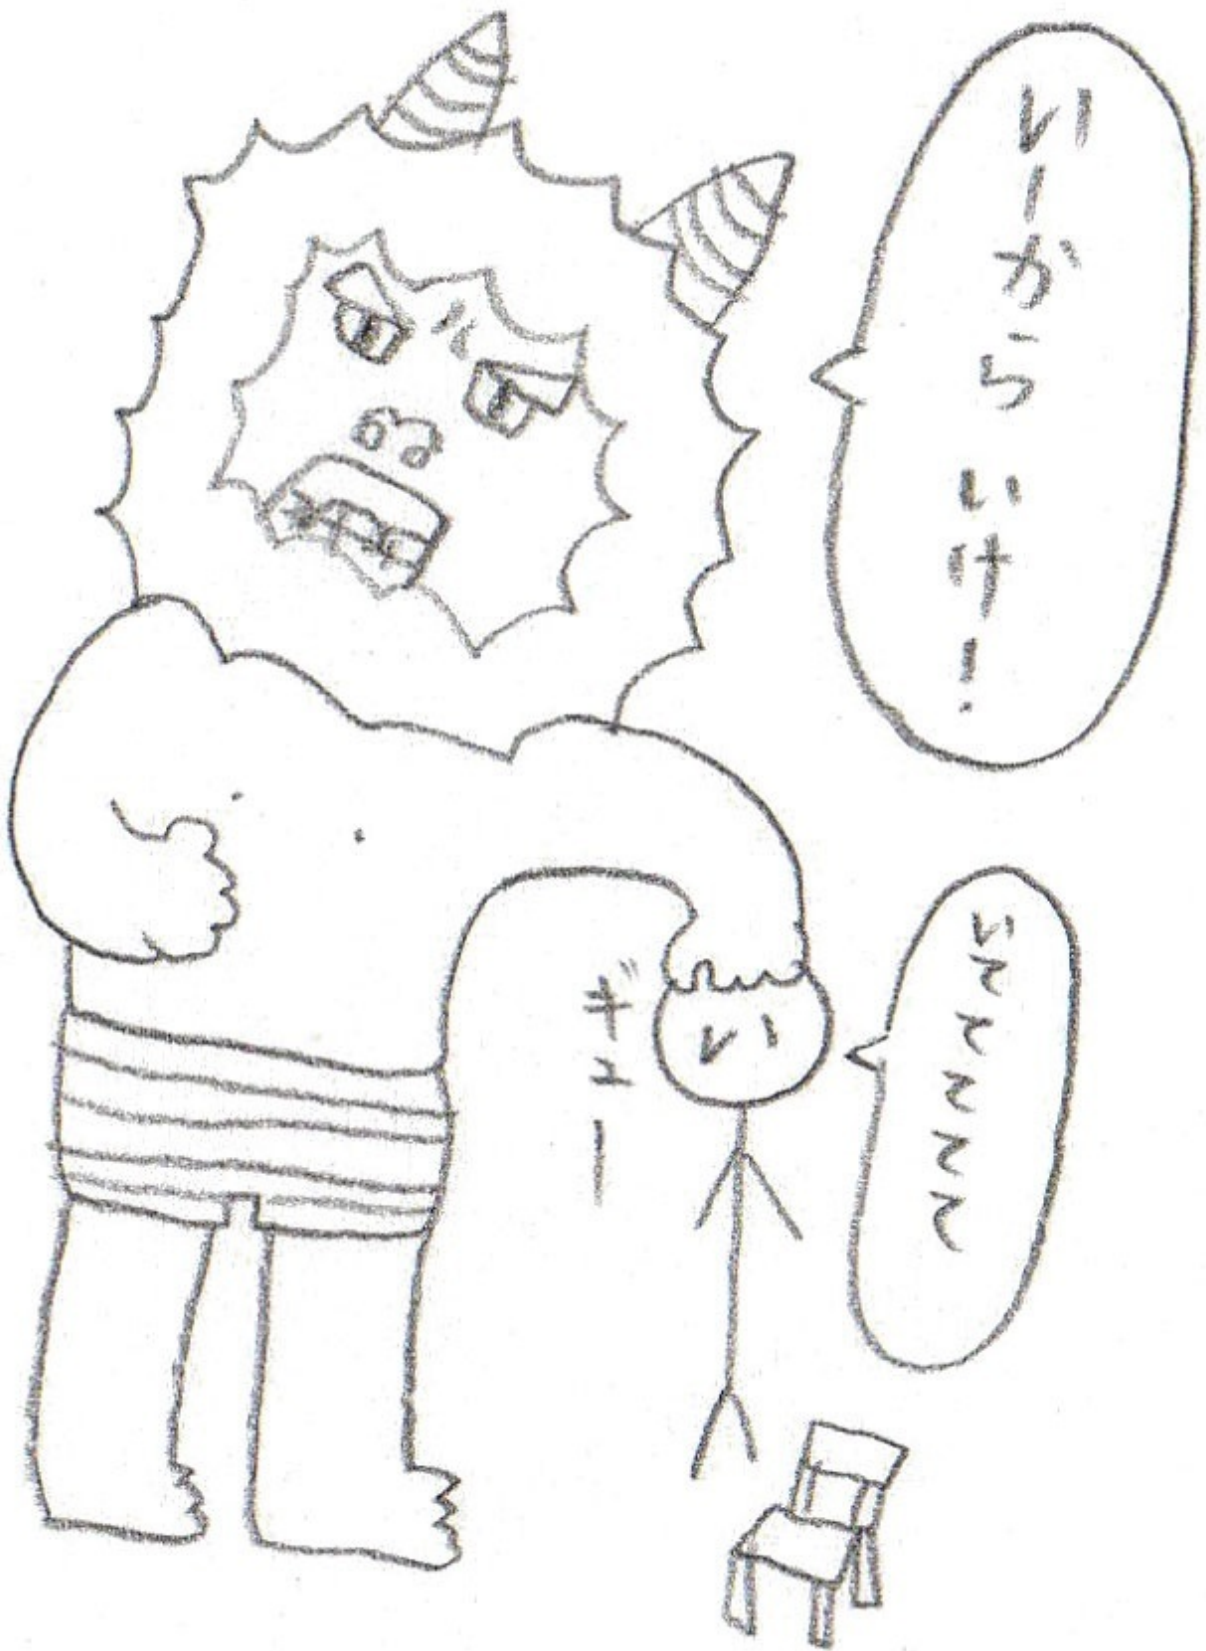 いーからいけ!
いててててて
い
ギュー